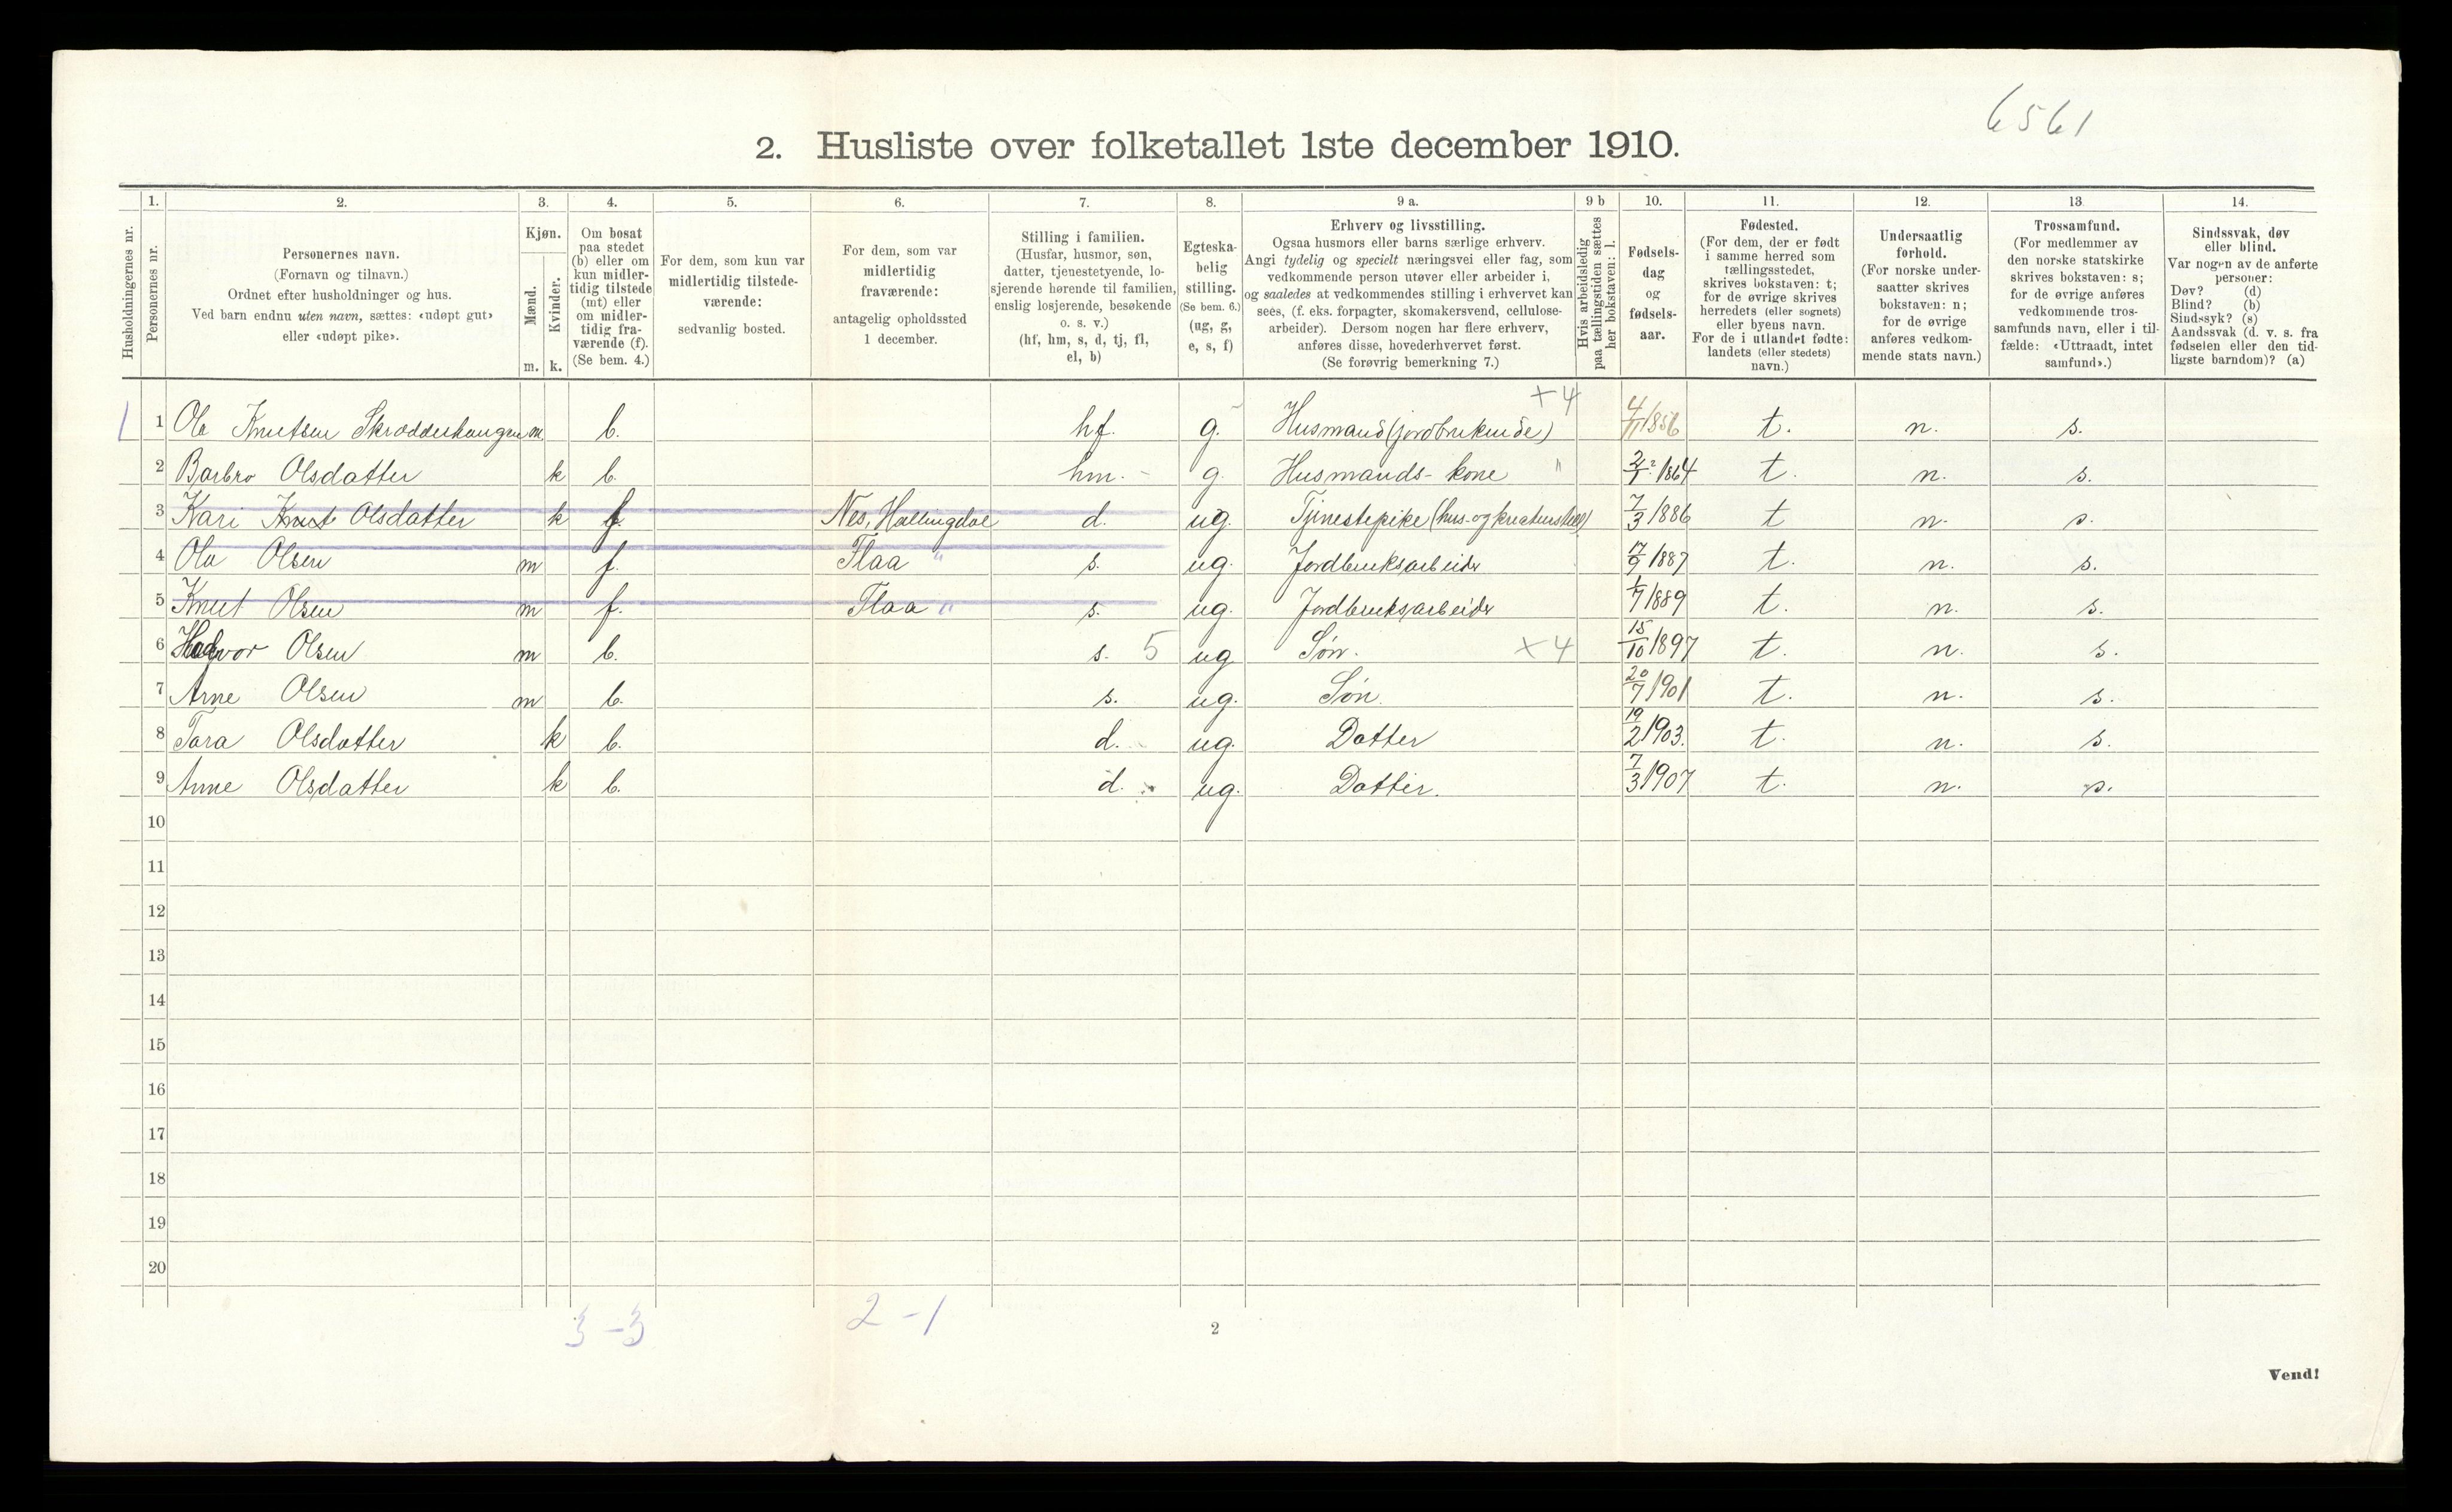 6561
2. Husliste over folketallet 1ste december 1910.
Husholdningernes nr.
1.
Personernes nr.
2.
Personernes navn.
(Fornavn og tilnavn.)
Ordnet efter husholdninger og hus.
Ved barn endnu uten navn, sættes: «udøpt gut»
eller «udøpt pike».
3.
Kjøn.
Mænd.
Kvinder.
m. k.
4.
Om bosat
paa stedet
(b) eller om
kun midler-
tidig tilstede
(mt) eller
om midler-
tidig fra-
værende (f).
(Se bem. 4.)
5.
For dem, som kun var
midlertidig tilstede-
værende:
sedvanlig bosted.
6.
For dem, som var
midlertidig
fraværende:
antagelig opholdssted
1 december.
7.
Stilling i familien.
(Husfar, husmor, søn,
datter, tjenestetyende, lo-
sjerende hørende til familien,
enslig losjerende, besøkende
o. s. v.)
(hf, hm, s, d, tj, fl,
el, b)
8.
Egteska-
belig
stilling.
(Se bem. 6.)
(ug, g,
e, s, f)
9 a.
Erhverv og livsstilling.
Ogsaa husmors eller barns særlige erhverv.
Angi tydelig og specielt næringsvei eller fag, som
vedkommende person utøver eller arbeider i,
og saaledes at vedkommendes stilling i erhvervet kan
sees, (f. eks. forpagter, skomakersvend, cellulose-
arbeider). Dersom nogen har flere erhverv,
anføres disse, hovederhvervet først.
(Se forøvrig bemerkning 7.)
9 b
Hvis arbeidsledig
paa tællingstiden sættes
her bokstaven: l.
10.
Fødsels-
dag
og
fødsels-
aar.
11.
Fødested.
(For dem, der er født
i samme herred som
tællingsstedet,
skrives bokstaven: t;
for de øvrige skrives
herredets (eller sognets)
eller byens navn.
For de i utlandet fødte:
landets (eller stedets)
navn.)
12.
Undersaatlig
forhold.
(For norske under-
saatter skrives
bokstaven: n;
for de øvrige
anføres vedkom-
mende stats navn.)
13
Trossamfund.
(For medlemmer av
den norske statskirke
skrives bokstaven: s;
for de øvrige anføres
vedkommende tros-
samfunds navn, eller i til-
fælde: «Uttraadt, intet
samfund».)
14.
Sindssvak, døv
eller blind.
Var nogen av de anførte
personer:
Døv? (d)
Blind? (b)
Sindssyk? (s)
Aandssvak (d. v. s. fra
fødselen eller den tid-
ligste barndom)? (a)
+4
1 1 Ole Knutsen Skrædderhaugen m b. hf. g. Husmand (jordbrukende) 4/11 1856 t. n. s.
2 Barbro Olsdatter k b. hm. - g. Husmands-kone " 2/1 1864 t. n. s.
3 Kari Knut Olsdatter k f Nes, Hallingdal d. ug. Tjenestepike (hus- og kreaturstell) 7/3 1886 t n. s.
4 Ola Olsen m f. Flaa " s. ug. Jordbruksarbeider 17/9 1887 t. n. s.
5 Knut Olsen m f. Flaa " s. ug. Jordbruksarbeider 1/7 1889 t. n. s.
6 Halvor Olsen m b. s. 5 ug Søn. +4 15/10 1897 t. n. s.
7 Arne Olsen m b. s. ug. Søn. 20/7 1901 t. n. s.
8 Tora Olsdatter k b. d. ug. Datter 19/2 1903. t. n. s.
9 Anne Olsdatter k b. d. ug. Datter. 7/3 1907 t. n. s.
10
11
12
13
14
15
16
17
18
19
20
3-3 2-1
2
Vend!